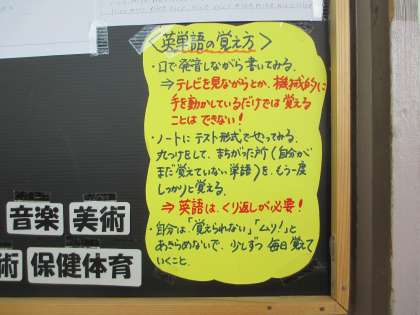 ＜英単語の覚え方＞
・口で発音しながら書いてみる。
⇒テレビを見ながらとか、機械的に
手を動かしているだけでは覚える
ことはできない！
・ノートにテスト形式でやってみる。
丸つけをして、まちがった所（自分が
まだ覚えていない単語）を、もう一度
しっかりと覚える。
⇒英語は、くり返しが必要！
・自分は「覚えられない」「ムリ！」と
あきらめないで、少しずつ毎日覚えて
いくこと。
音楽 美術
術 保健体育